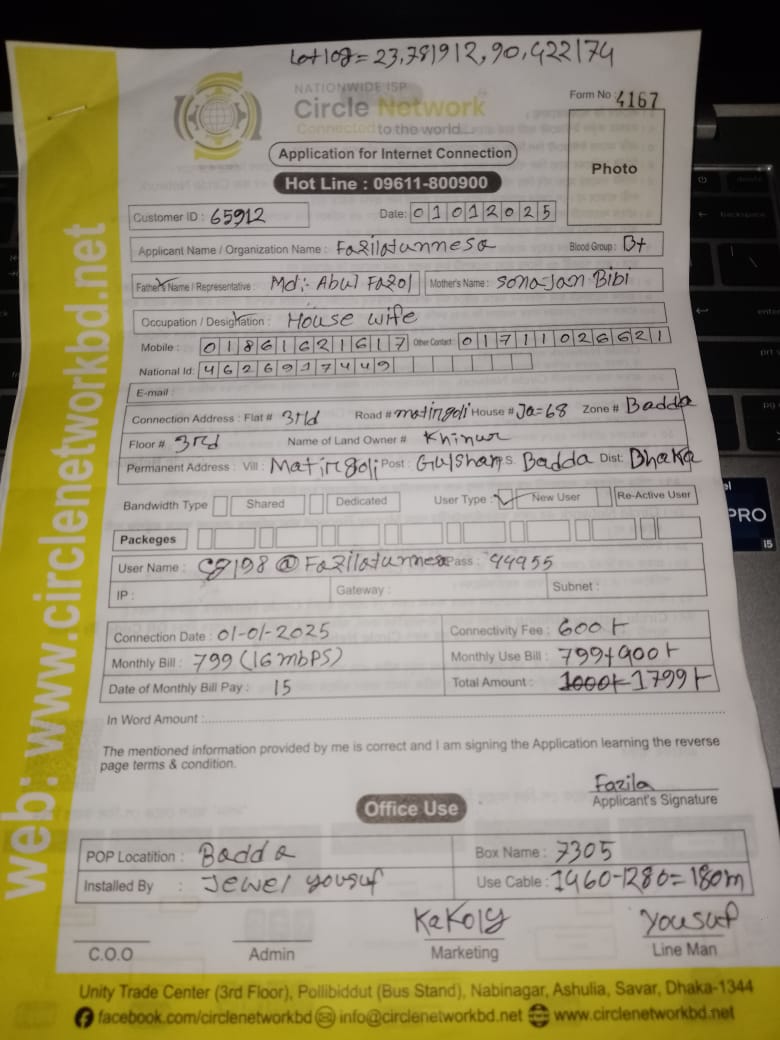 Lat log = 23,781912, 90,422174
NATIONWIDE ISP
Circle Network
Connected to the world
Form No 4167
Application for Internet Connection
Photo
Hot Line : 09611-800900
Customer ID : 65912 Date: 01012025
Applicant Name / Organization Name : Fazilatunnesa Blood Group : B+
Father's Name / Representative : Md:- Abul Fazol Mother's Name : Sona Jan Bibi
Occupation / Designation : House wife
Mobile : 01861621617 Other Contact : 01711026621
National Id: 4626917449
E-mail :
Connection Address : Flat # 3rd Road # matirgoli House # Ja=68 Zone # Badda
Floor # 3rd Name of Land Owner # Khinur
Permanent Address : Vill : Matirgoli Post : Gulshan P.S. Badda Dist: Dhaka
Bandwidth Type Shared Dedicated User Type : New User Re-Active User
Packeges
User Name : @Fazilatunnesa Pass : 44955
IP : Gateway : Subnet :
Connection Date : 01-01-2025 Connectivity Fee : 600
Monthly Bill : 799 (16 mbPS) Monthly Use Bill : 799+
Date of Monthly Bill Pay : 15 Total Amount : 1000 1799
In Word Amount :
The mentioned information provided by me is correct and I am signing the Application learning the reverse
page terms & condition.
Fazila
Applicant's Signature
Office Use
POP Locatition : Badda Box Name : 7305
Installed By : Jewel yousuf Use Cable : 1460-1280=180m
Kakoly yousuf
C.O.O Admin Marketing Line Man
Unity Trade Center (3rd Floor), Pollibiddut (Bus Stand), Nabinagar, Ashulia, Savar, Dhaka-1344
facebook.com/circlenetworkbd info@circlenetworkbd.net www.circlenetworkbd.net
web: www.circlenetworkbd.net
PRO
i5